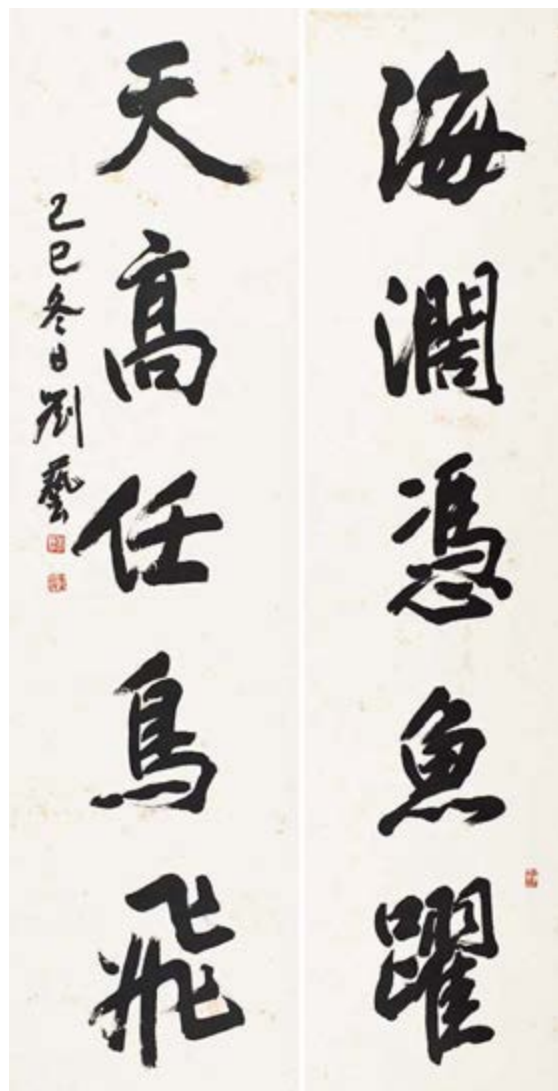 海濶憑魚躍
天高任鳥飛
己巳冬日劉藝